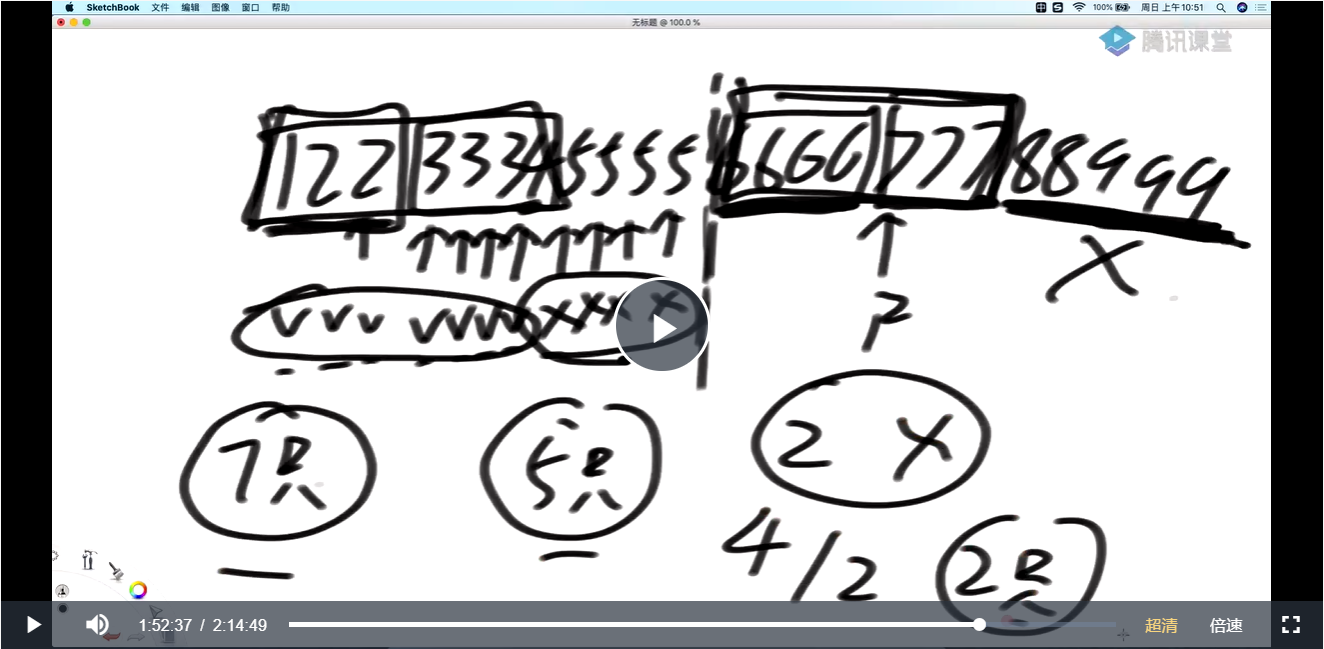 SketchBook 文件 编辑 图像 窗口 帮助
100% 周日 上午10:51
无标题 @ 100.0 %
腾讯课堂
122 3334 5555 6666 777 88999
↑ ↑↑↑↑↑↑↑↑ ↑ X
VVV VVVV XXX X P
7只 5只 2 X
4/2 2只
1:52:37 / 2:14:49 超清 倍速